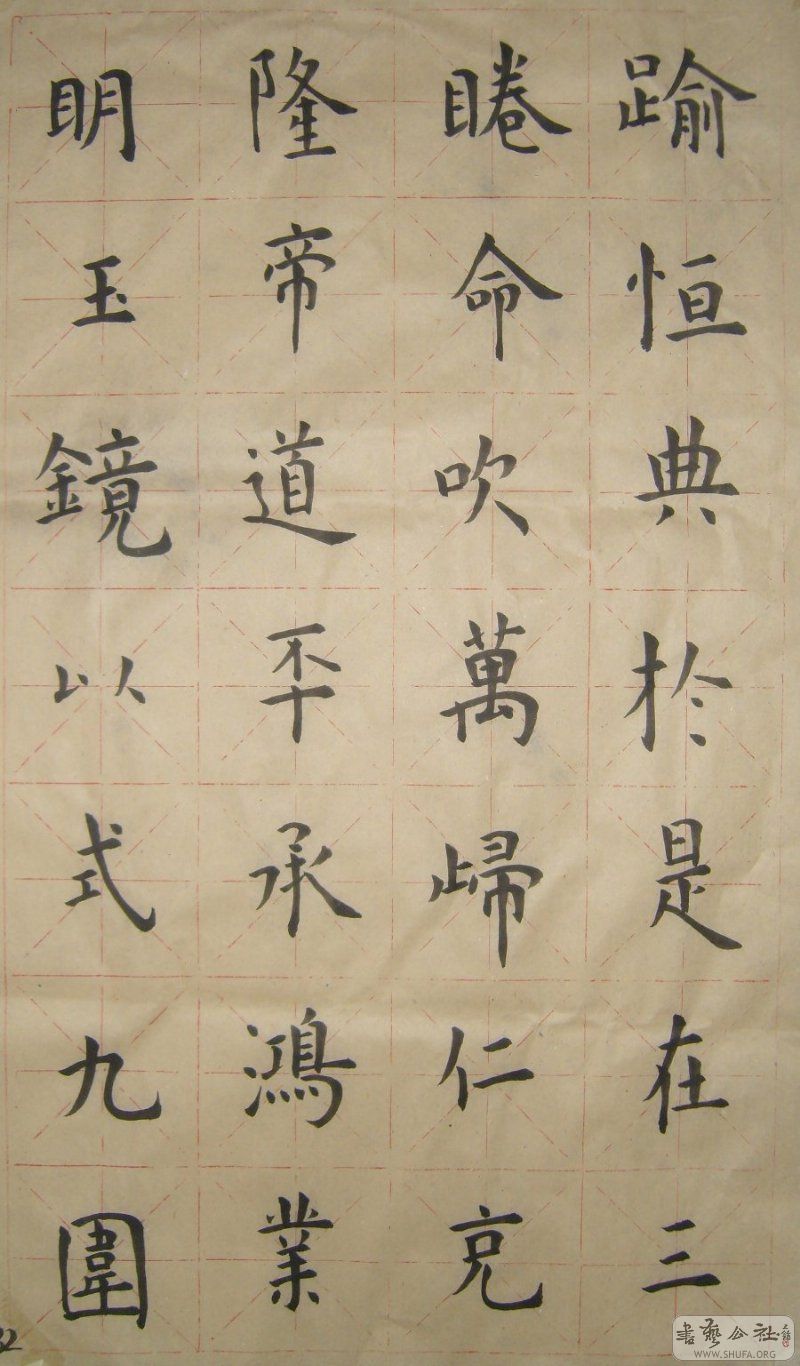 踰恒典於是在三
睠命吹萬歸仁克
隆帝道丕承鴻業
明玉鏡以式九圍
書藝公社
WWW.SHUFA.ORG